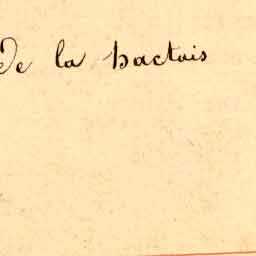 De la hactais